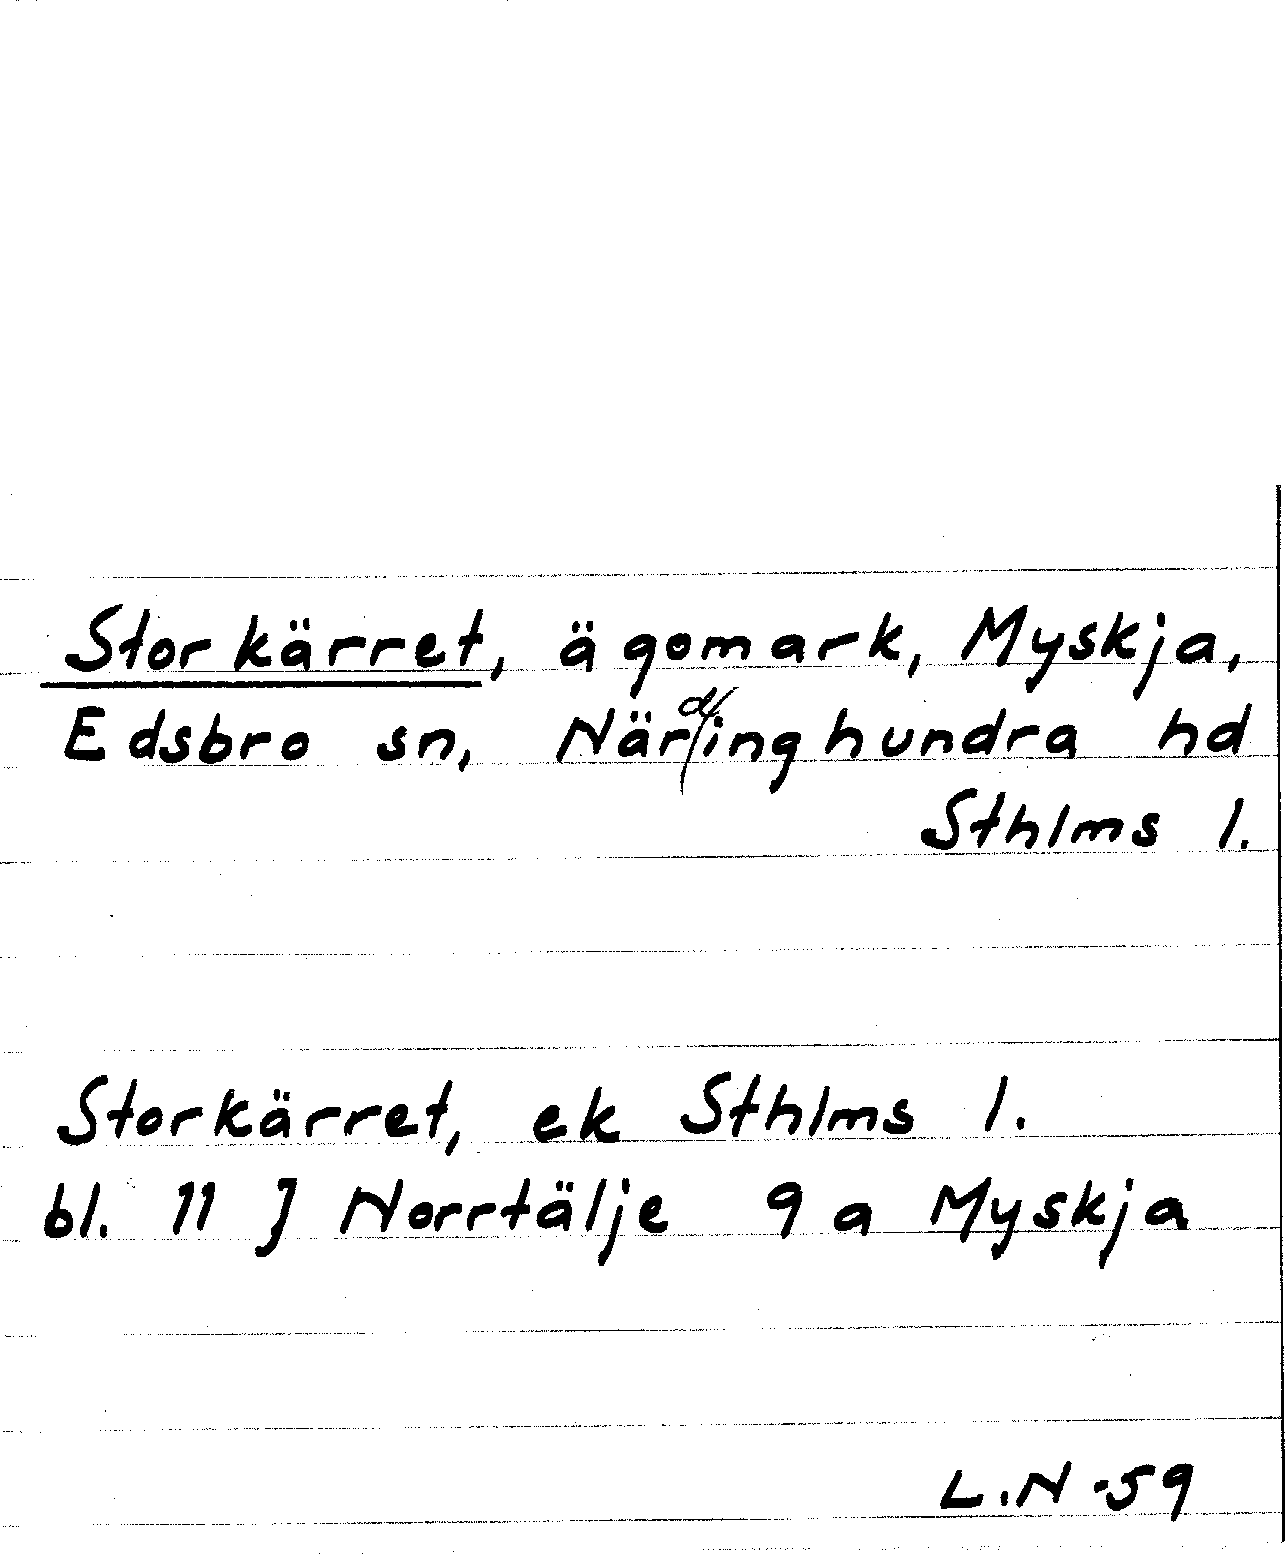 Storkärret, ägomark, Myskja,
Edsbro sn, Närdinghundra hd
Sthlms l.
Storkärret, ek Sthlms l.
bl. 11 J Norrtälje 9 a Myskja
L.N -59